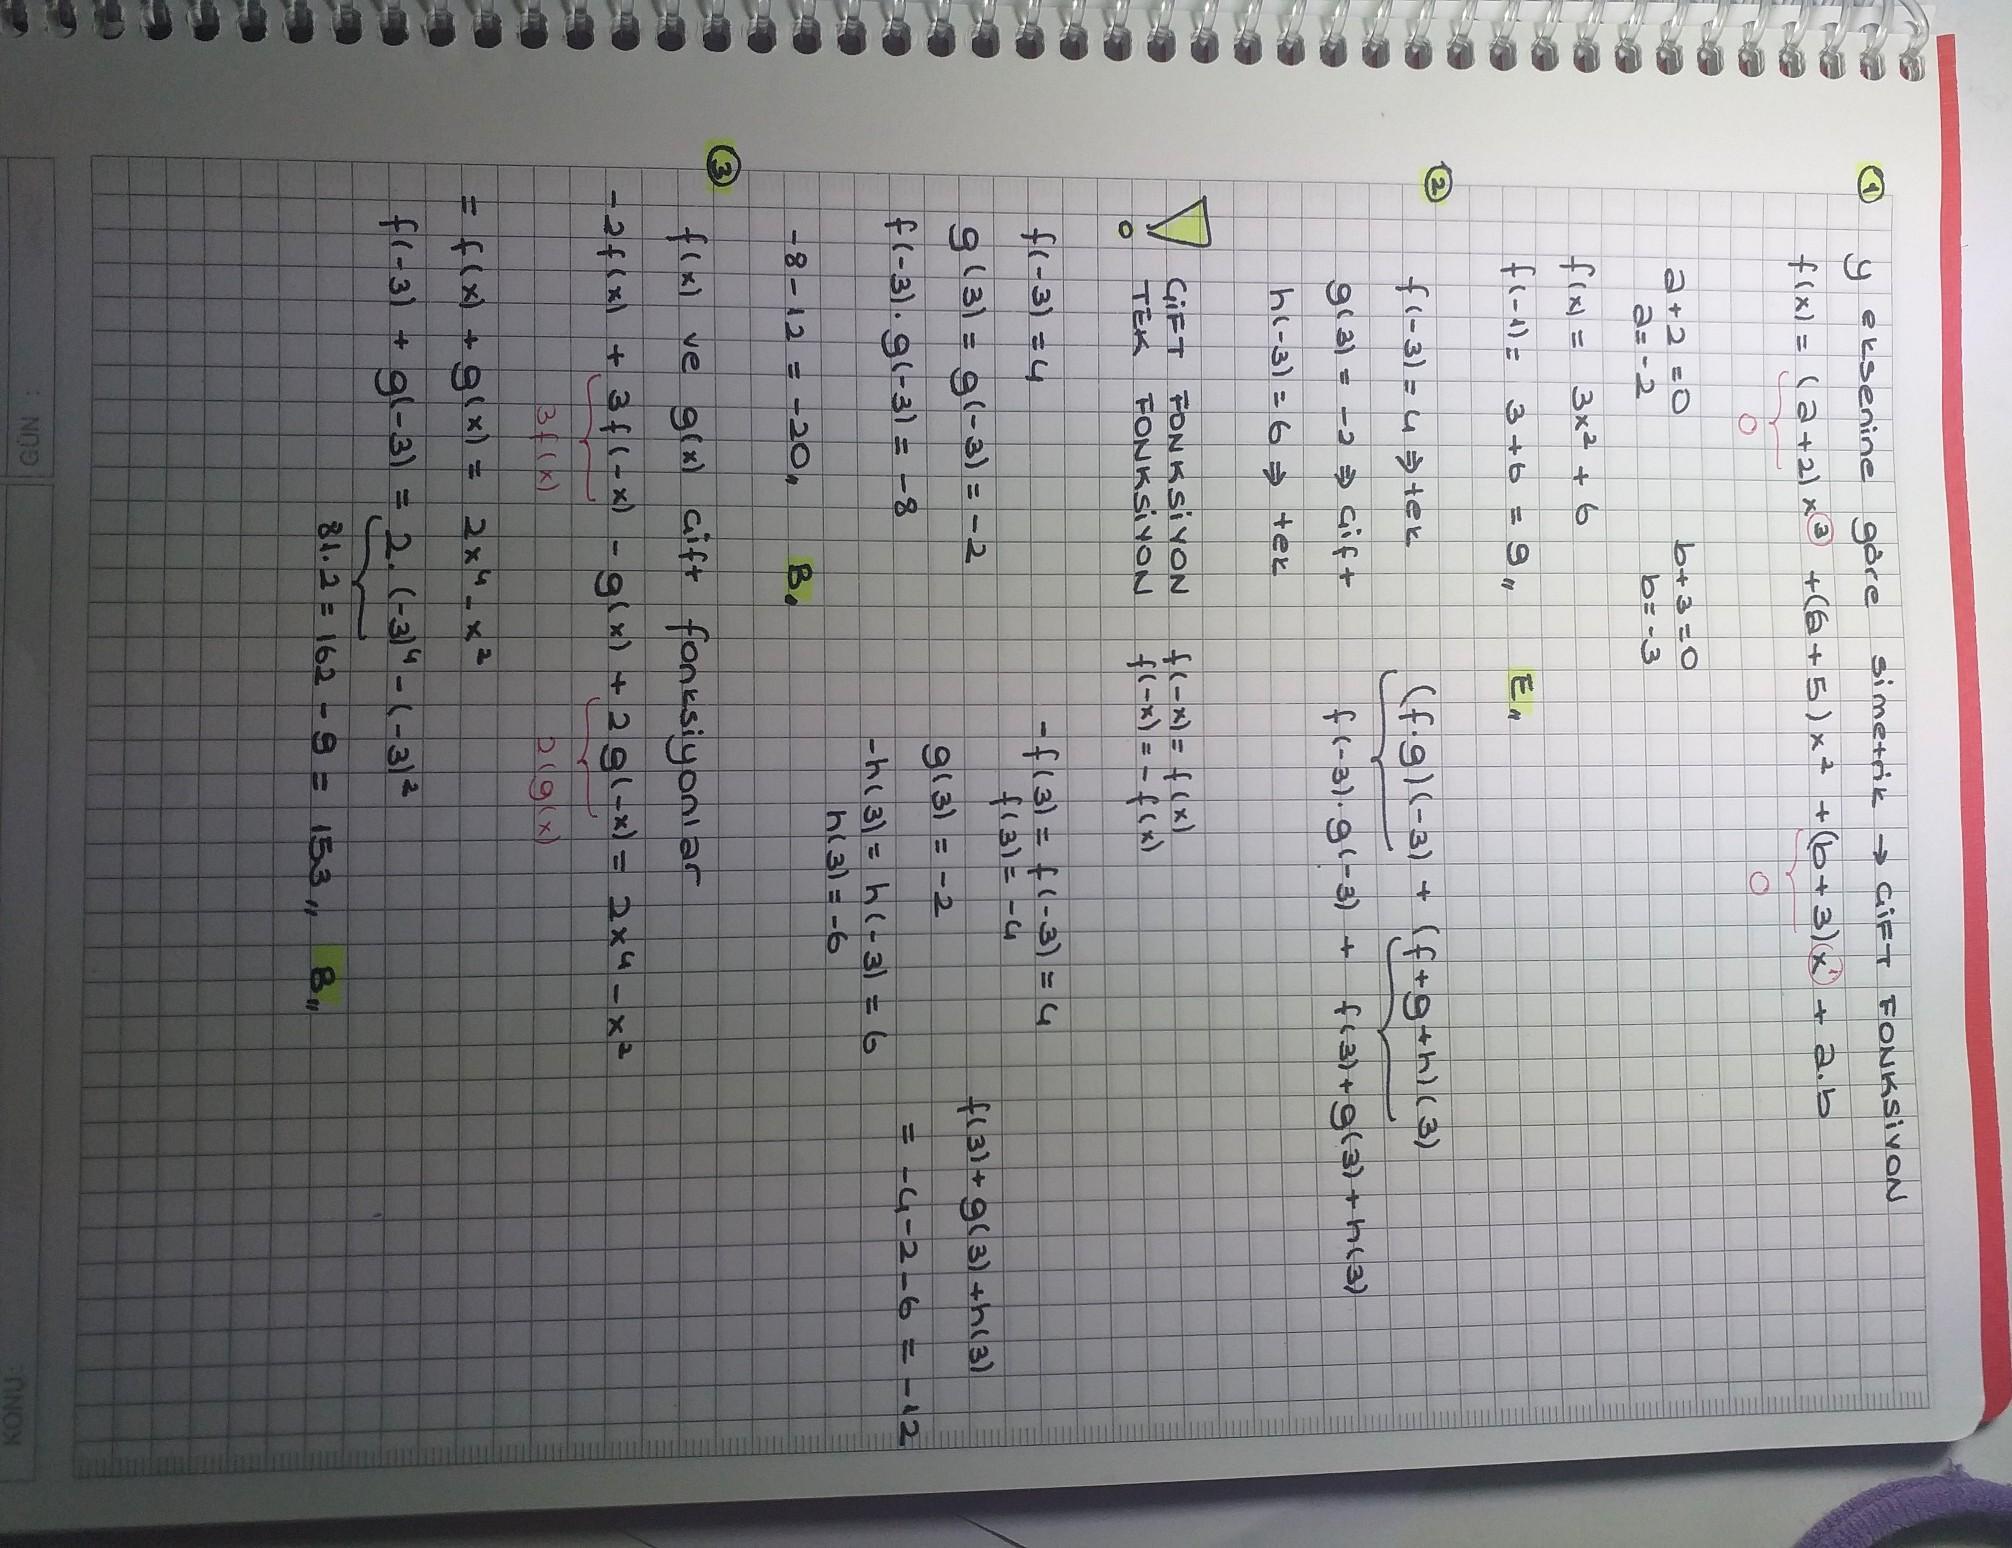 ① y eksenine göre simetrik → ÇİFT FONKSİYON
f(x) = (a+2)x³ + (a+5)x² + (b+3)x¹ + a.b
0 0
a+2=0 b+3=0
a=-2 b=-3
f(x) = 3x² + 6
f(-1) = 3+6 = 9,, E,,
② f(-3)=4 ⇒ tek (f.g)(-3) + (f+g+h)(3)
g(3) = -2 ⇒ çift f(-3).g(-3) + f(3)+g(3)+h(3)
h(-3) = 6 ⇒ tek
ÇİFT FONKSİYON f(-x) = f(x)
TEK FONKSİYON f(-x) = -f(x)
f(-3) = 4 -f(3) = f(-3) = 4
f(3) = -4
g(3) = g(-3) = -2 g(3) = -2 f(3)+g(3)+h(3)
f(-3).g(-3) = -8 -h(3) = h(-3) = 6 = -4-2-6 = -12
h(3) = -6
-8-12 = -20,, B,,
③ f(x) ve g(x) çift fonksiyonlar
-2f(x) + 3f(-x) - g(x) + 2g(-x) = 2x⁴ - x²
3f(x) 2(g(x)
= f(x) + g(x) = 2x⁴ - x²
f(-3) + g(-3) = 2.(-3)⁴ - (-3)²
81.2 = 162 - 9 = 153,, B,,
GÜN :
KONU: